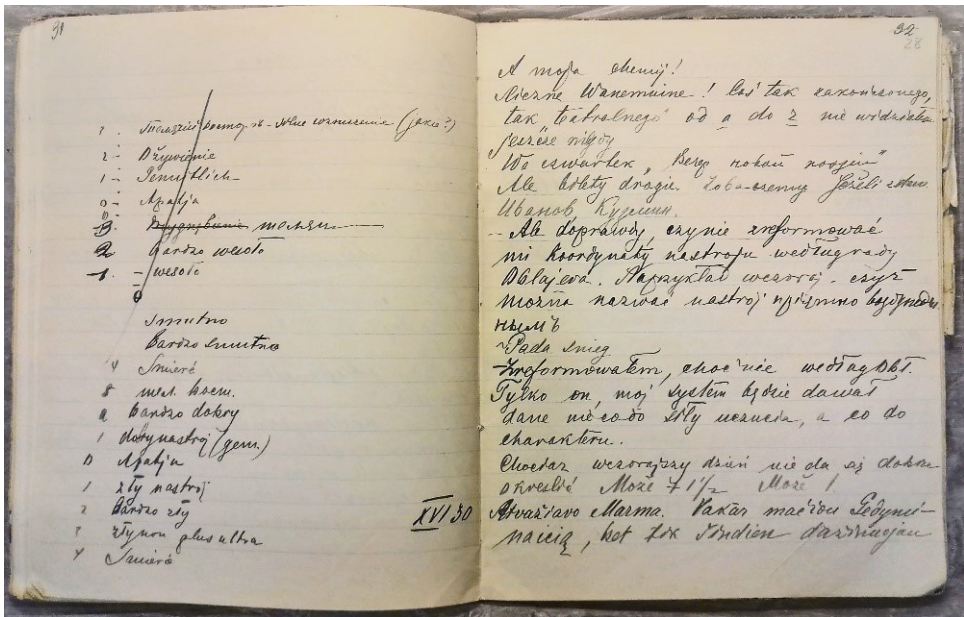 31
(jakie?)
2 - Ożywienie
1 - Gemütlich
0 - Apatja
3.
2 bardzo wesoło
1. - wesoło
0
smutno
bardzo smutno
4 Śmierć
3
2 bardzo dobry
1 dobry nastrój (gem.)
0 Apatja
1 zły nastrój
2 bardzo zły
3 zły non plus ultra
4 Śmierć
32
28
A moja chemij!
Śliczne Wanemuine! Coś tak zakończonego,
tak teatralnego od a do z nie widziałam
jeszcze nigdy
We czwartek
Ale bilety drogie. Zobaczemy Jeżeli
Иванов, Кузмин.
- Ale doprawdy czy nie zreformować
mi koordynaty nastroju według rady
Obłajewa. Naprzykład wczoraj, czyż
można nazwać nastrój
нымъ
Pada śnieg
Zreformowałem, choć nie według Obł.
Tylko on, mój system będzie dawał
dane nie co do siły uczucia, a co do
charakteru..
Chociaż wczorajszy dzień nie da się dobrze
określić Może + 1 1/2 Może 1
XVI 30 Atvažiavo Marma. Vakar mačiau Gedymi-
naicią, bet tik šiandien dažinojau